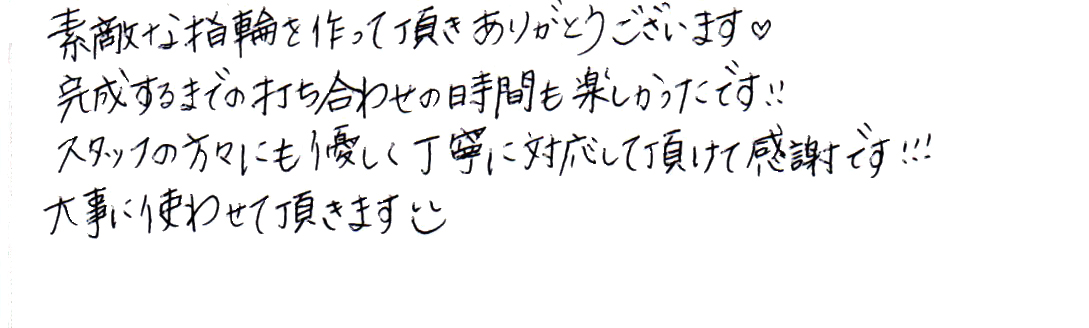 素敵な指輪を作って頂きありがとうございます♡
完成するまでの打ち合わせの時間も楽しかったです!!
スタッフの方々にも優しく丁寧に対応して頂けて感謝です!!!
大事に使わせて頂きます